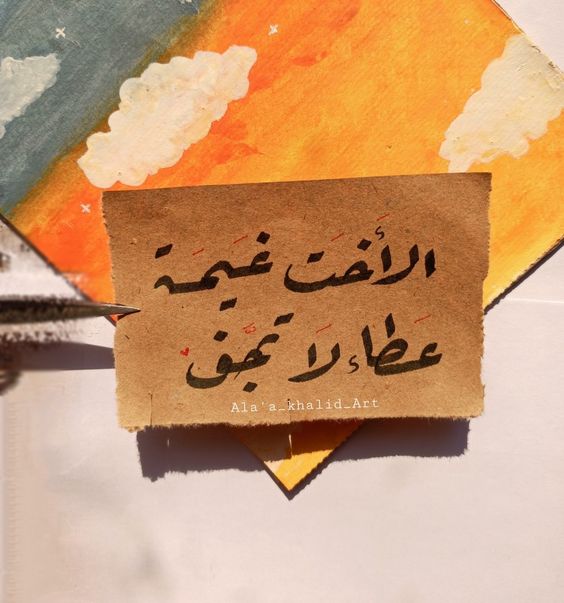 الأخت غيمة
عطاء لا تجف
Ala'a_khalid_Art